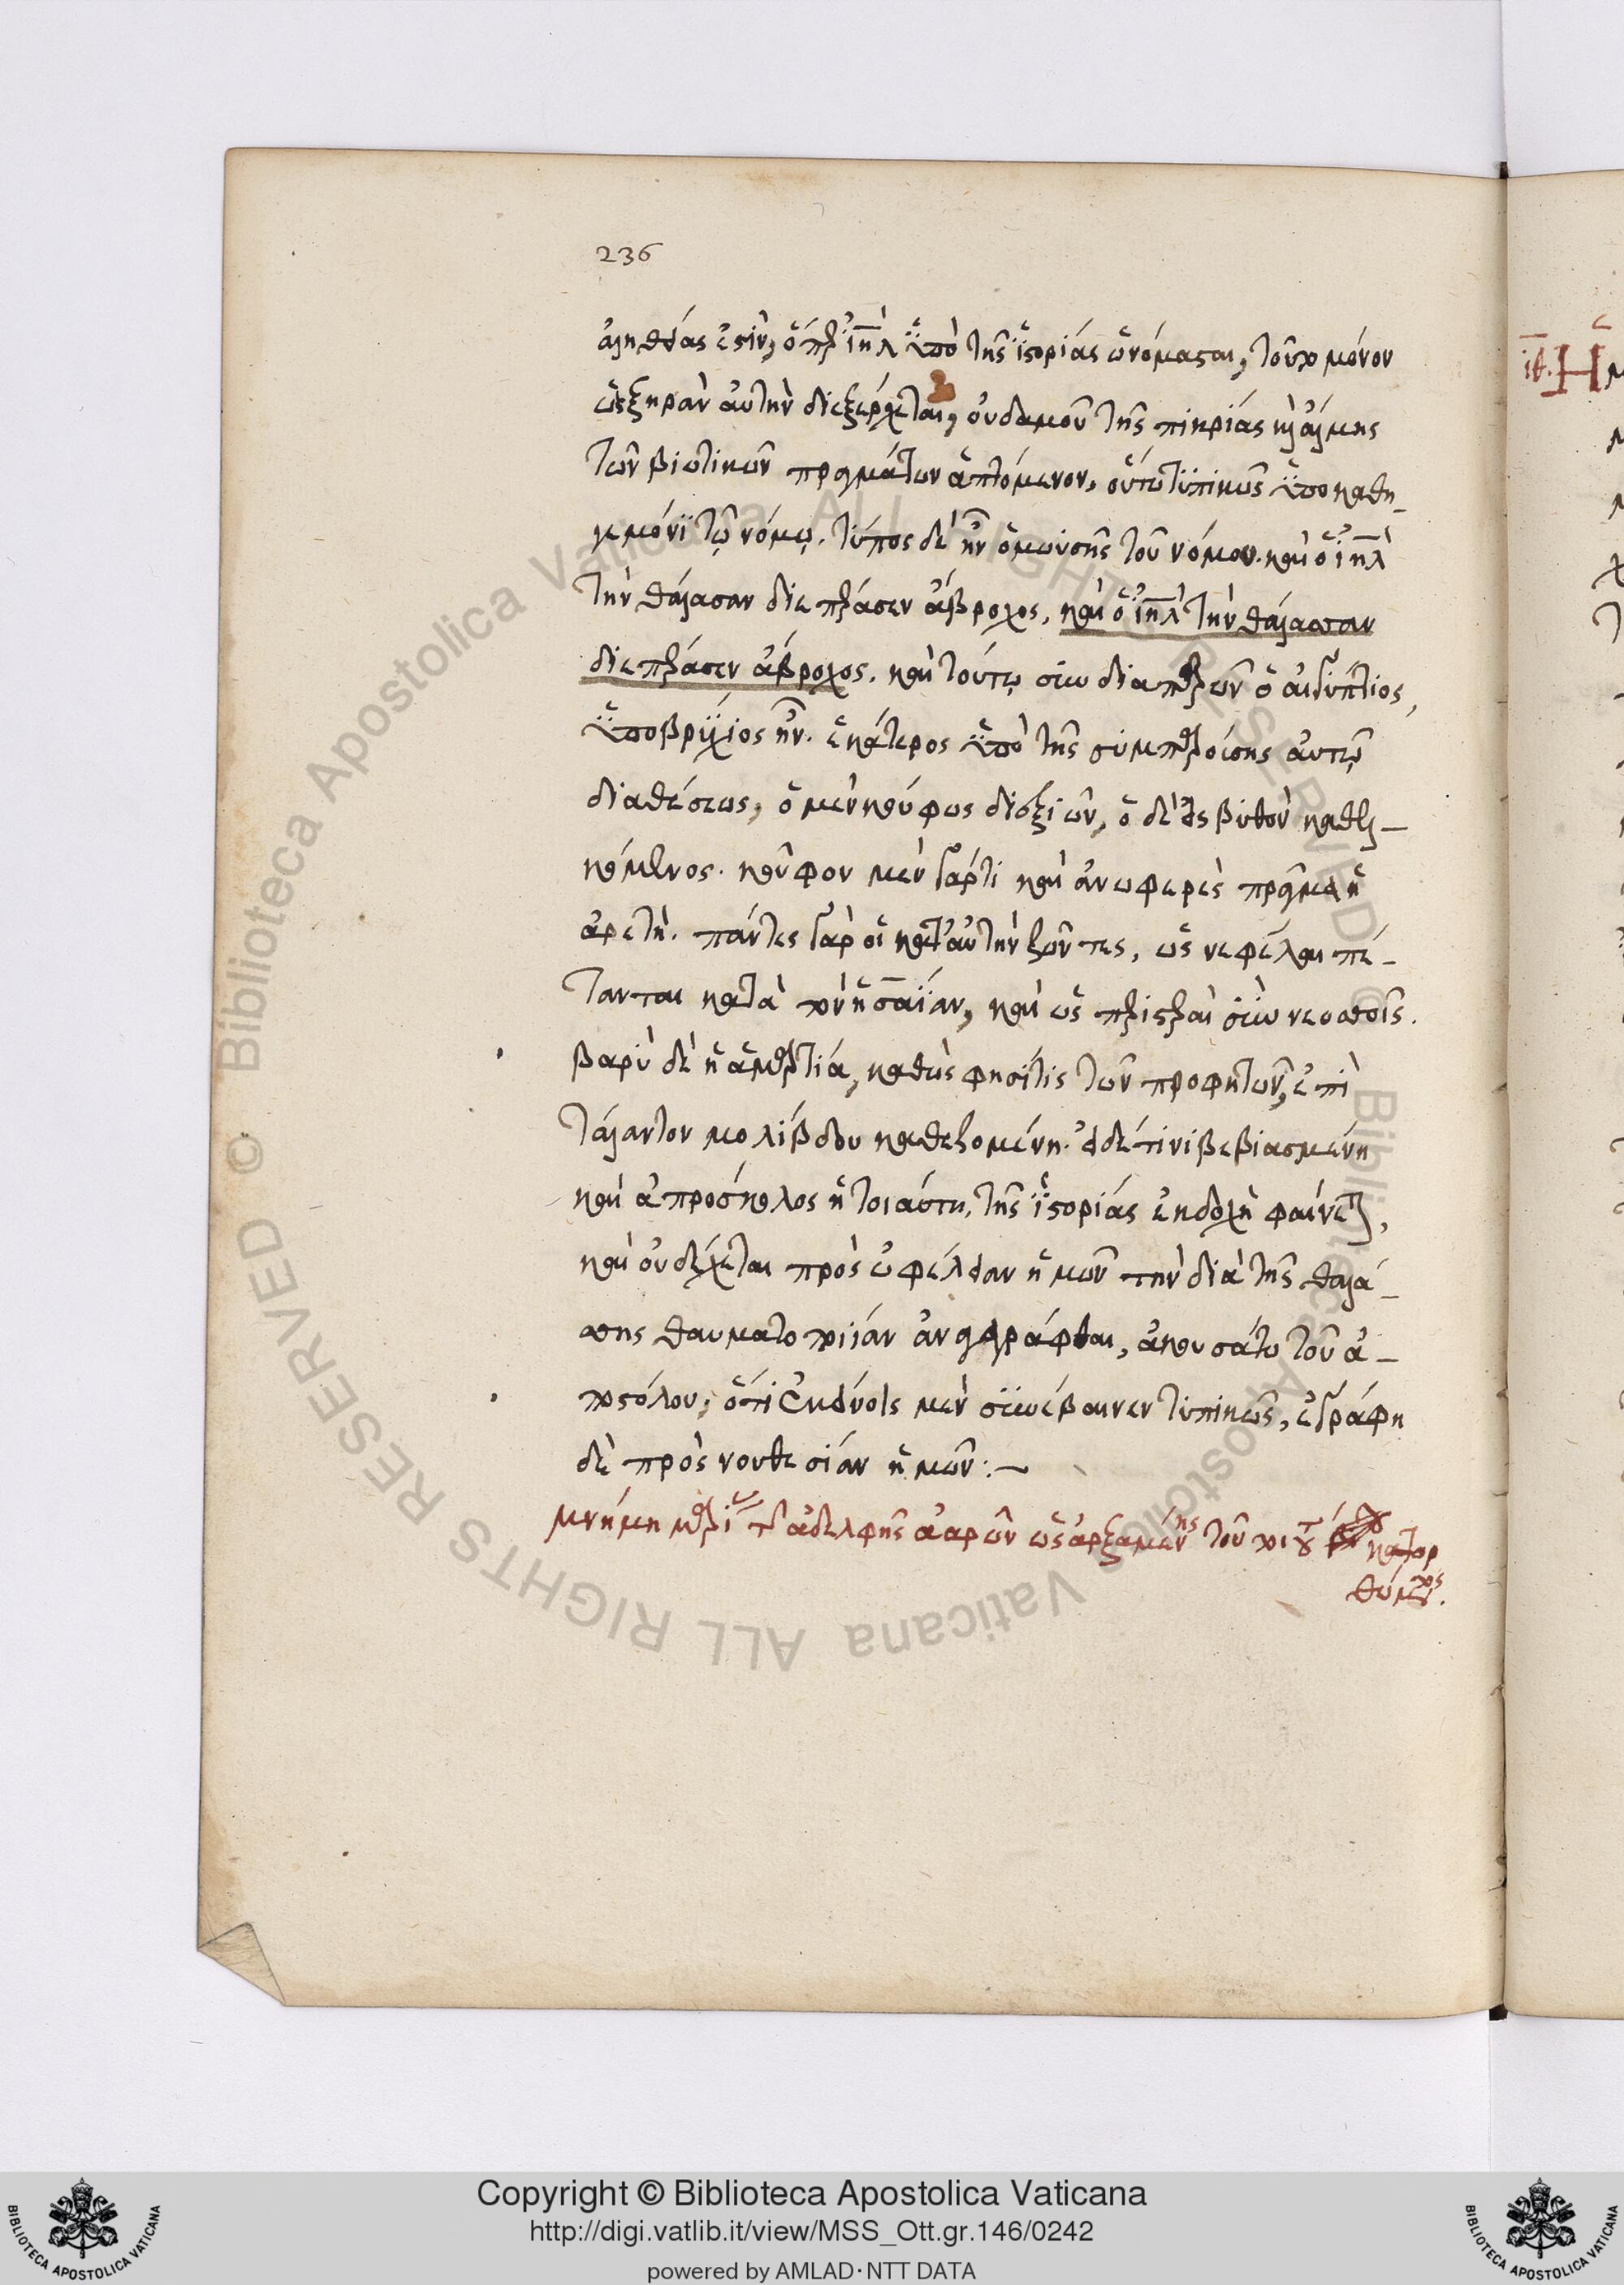 236
ἀληθείας ἐστὶν, ὅπερ ἰηλ ὑπὸ τῆς ἱστορίας ὠνόμασται, τοῦτο μόνον
ὡς ξηρὰν αὐτὴν διεξέρχεται, οὐδαμοῦ τῆς πικρίας κ ἅλμης
τῶν βιωτικῶν πραγμάτων ἁπτόμενον, οὕτω τυπικῶς ὑπο καθη-
γεμόνι τῷ νόμῳ. τύπος δὲ ἦν ὁ μωυσῆς τοῦ νόμου. καὶ ὁ ἰηλ
τὴν θάλασσαν διεπέρασεν ἄβροχος, καὶ ὁ ἰηλ τὴν θάλασσαν
διεπέρασεν ἄβροχος. καὶ τούτῳ συν διαπερῶν ὁ αἰγύπτιος,
ὑποβρύχιος ἦν. ἑκάτερος ὑπὸ τῆς συμπαρούσης αὐτῷ
διαθέσεως, ὁ μὲν κούφως διεξιὼν, ὁ δὲ εἰς βυθὸν καθελ-
κόμενος. κοῦφον μὲν γάρ τι καὶ ἀνωφερὲς πρᾶγμα ἡ
ἀρετὴ. πάντες γὰρ οἱ κατ' αὐτὴν ζῶντες, ὡς νεφέλαι πέ-
τανται κατὰ τὸν ἡσαΐαν, καὶ ὡς περιστεραὶ σὺν νεοσσοῖς.
βαρὺ δὲ ἡ ἁμαρτία, καθὼς φησί τις τῶν προφητῶν, ἐπὶ
τάλαντον μολίβδου καθεζομένη. εἰ δέ τινι βεβιασμένη
καὶ ἀπροσήκολος ἡ τοιαύτη, τῆς ἱστορίας ἐκδοχὴ φαίνεται,
καὶ οὐ δέχεται πρὸς ὠφέλειαν ἡμῶν τὴν διὰ τῆς θαλά-
σσης θαυματοποιίαν ἀναγεγράφθαι, ἀκουσάτω τοῦ ἀ-
ποστόλου, ὅτι ἐκείνοις μὲν συνέβαινεν τυπικῶς, ἐγράφη
δὲ πρὸς νουθεσίαν ἡμῶν :-
μνήμη μαρίας τῆς ἀδελφῆς ἀαρὼν ὡς ἀρξαμένης τοῦ τοιούτου κατορ
θώματος.
ιθ. Η
Copyright © Biblioteca Apostolica Vaticana
http://digi.vatlib.it/view/MSS_Ott.gr.146/0242
powered by AMLAD·NTT DATA